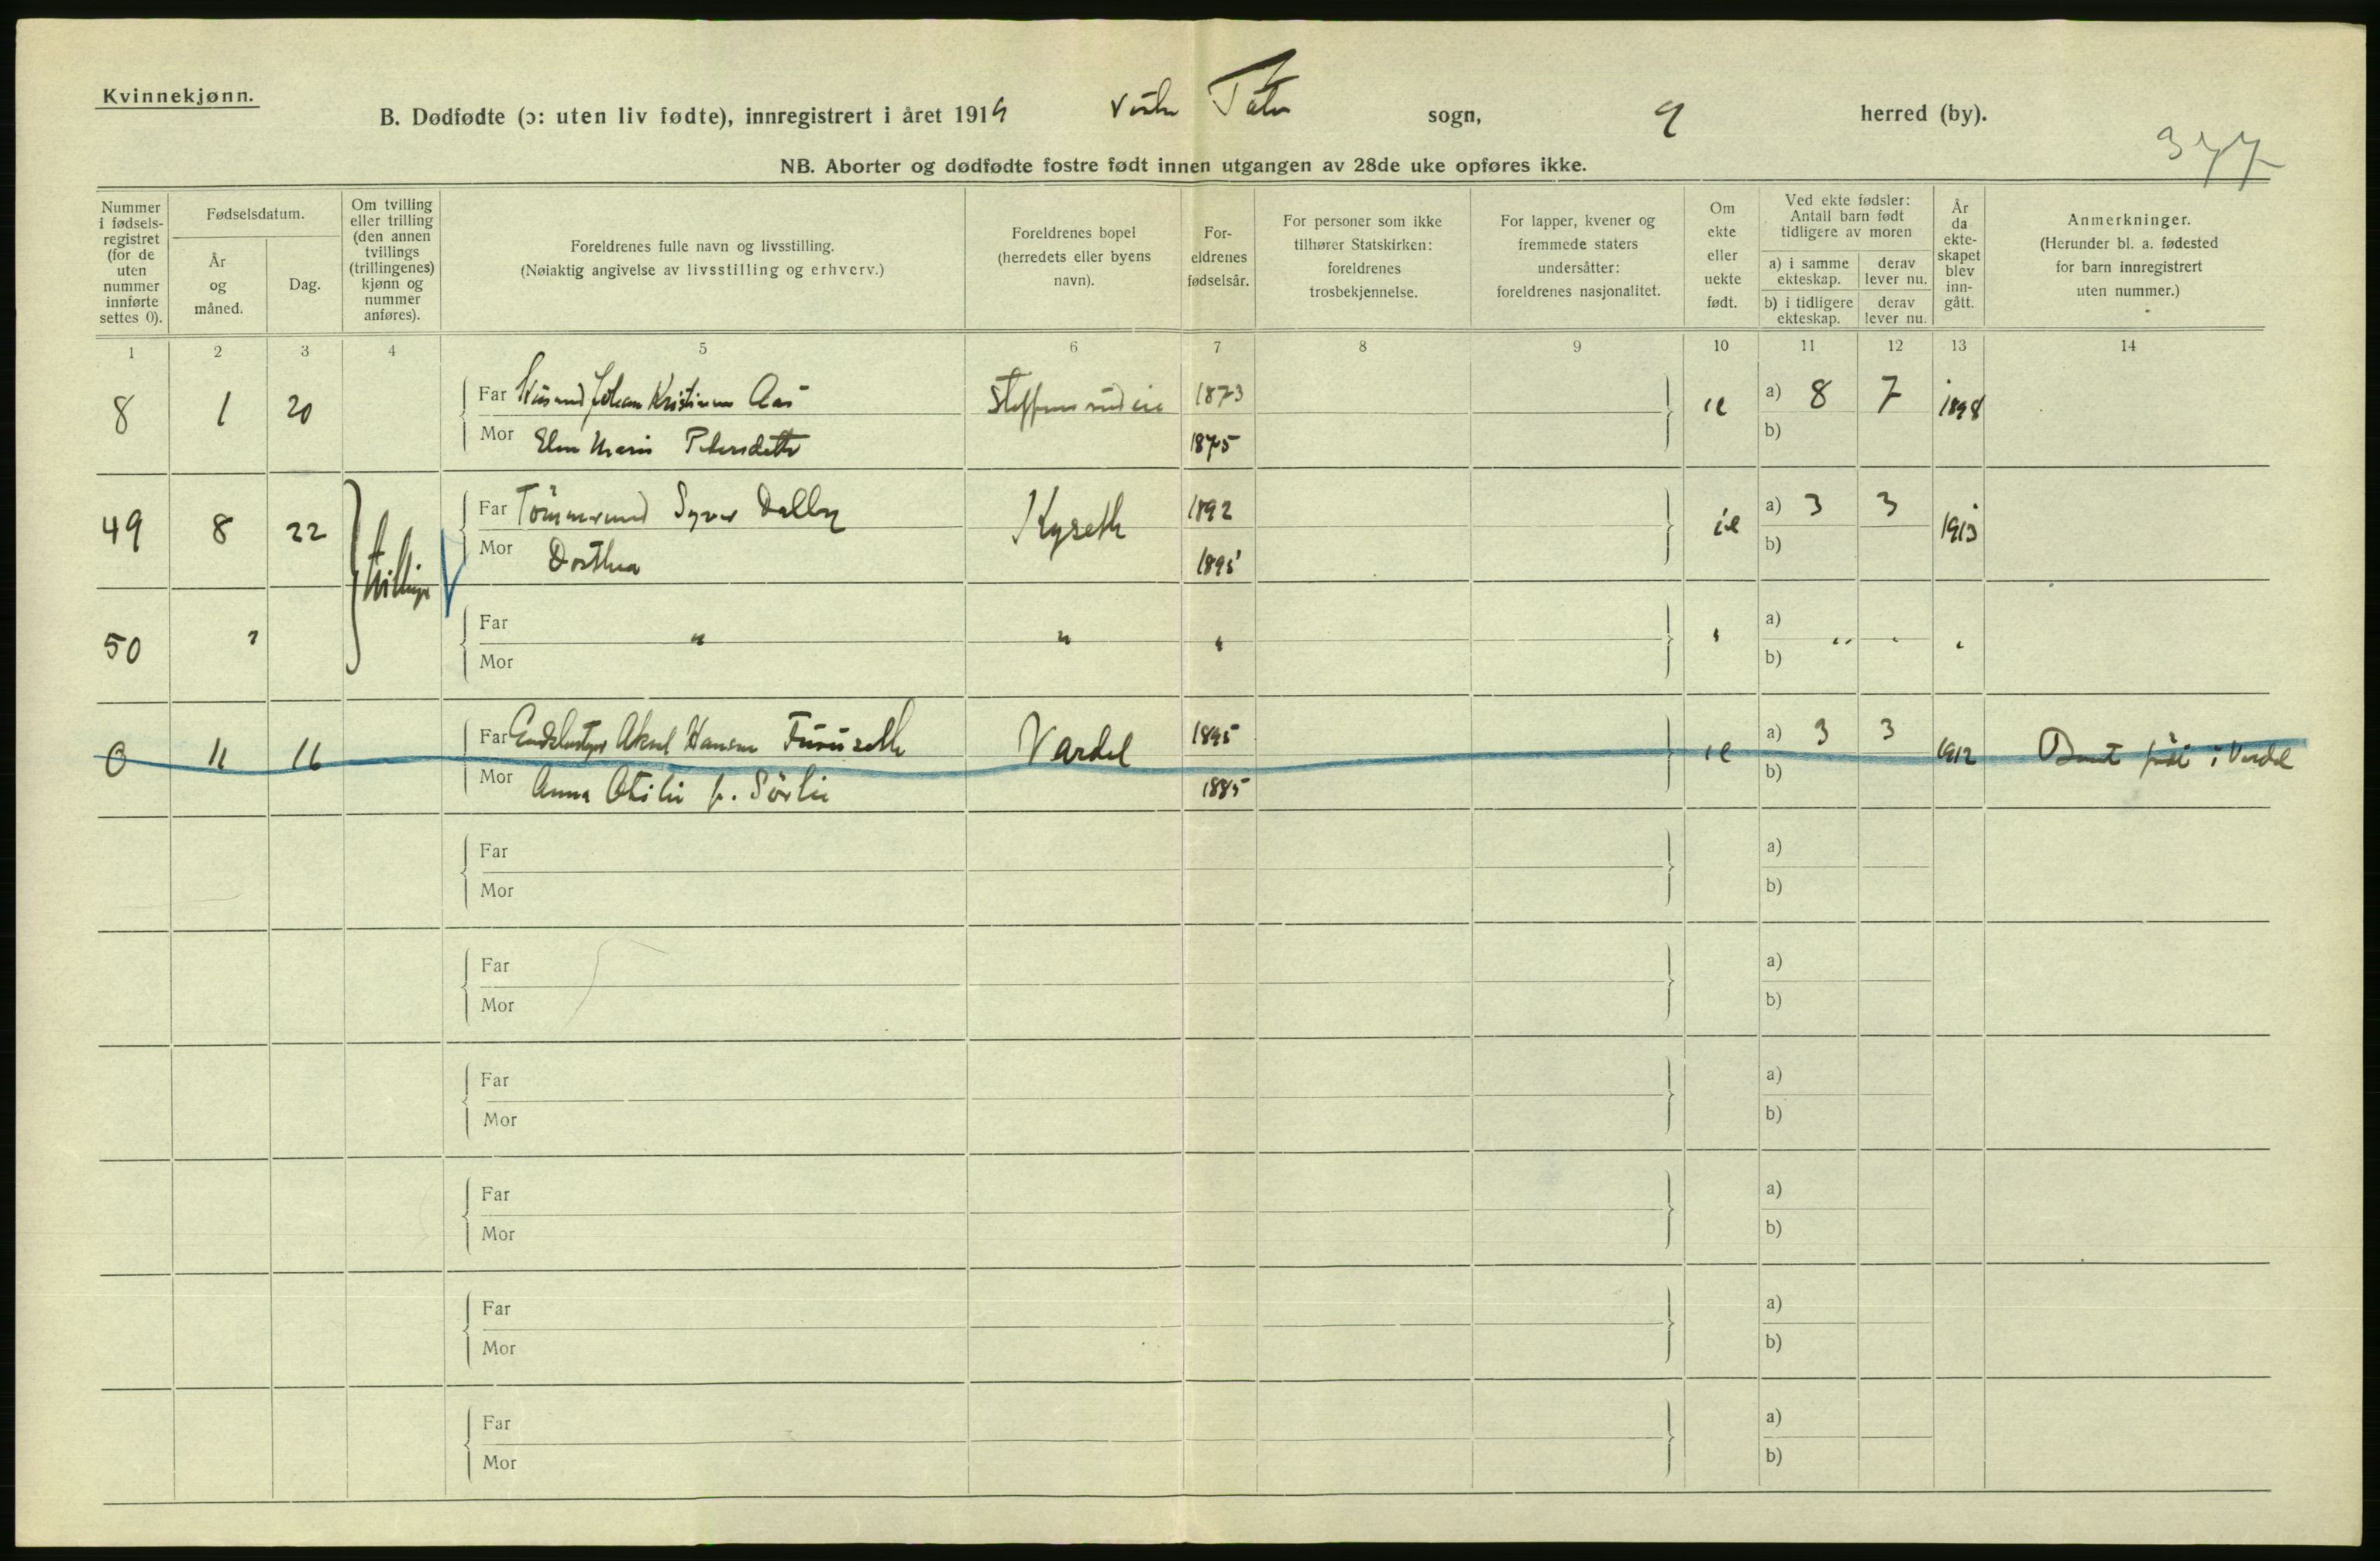 Kvinnekjønn.
B. Dødfødte (ɔ: uten liv fødte), innregistrert i året 1919 Vestre Toten sogn, herred (by).
377
NB. Aborter og dødfødte fostre født innen utgangen av 28de uke opføres ikke.
Nummer i fødsels- registret (for de uten nummer innførte settes 0).
Fødselsdatum.
År og måned.
Dag.
Om tvilling eller trilling (den annen tvillings (trillingenes) kjønn og nummer anføres).
Foreldrenes fulle navn og livsstilling. (Nøiaktig angivelse av livsstilling og erhverv.)
Foreldrenes bopel (herredets eller byens navn).
For- eldrenes fødselsår.
For personer som ikke tilhører Statskirken: foreldrenes trosbekjennelse.
For lapper, kvener og fremmede staters undersåtter: foreldrenes nasjonalitet.
Om ekte eller uekte født.
Ved ekte fødsler: Antall barn født tidligere av moren
a) i samme ekteskap.
derav lever nu.
b) i tidligere ekteskap.
derav lever nu.
År da ekte- skapet blev inn- gått.
Anmerkninger. (Herunder bl. a. fødested for barn innregistrert uten nummer.)
1 2 3 4 5 6 7 8 9 10 11 12 13 14
8 1 20 Far Johan Kristian Aas 1873 a) 8 7 1898
Mor Petersdatter 1875 b)
49 8 22 Far Dalby Kyseth 1892 a) 3 3 1913
Mor Dorthea 1895 b)
50 " Far " " " " a) " " "
Mor b)
0 11 16 Far Aksel Hansen Furuseth Vardal 1895 a) 3 3 1912 i Vardal
Mor Anna Otilie f. Sørlie 1885 b)
Far a)
Mor b)
Far a)
Mor b)
Far a)
Mor b)
Far a)
Mor b)
Far a)
Mor b)
Far a)
Mor b)